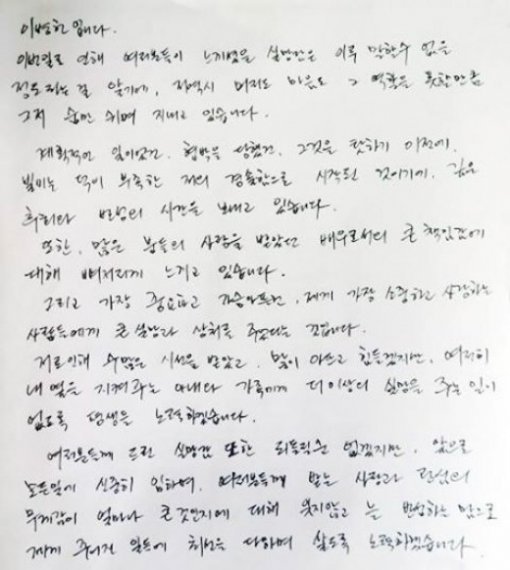 이병헌입니다.
이번일로 인해 여러분들이 느끼셨을 실망감은 이루 말할수 없을
정도라는걸 알기에, 저역시 머리도 마음도 그 역할을 못할만큼
그저 숨만 쉬며 지내고 있습니다.
계획적인 일이었건, 협박을 당했건, 그것을 탓하기 이전에,
빌미는 덕이 부족한 저의 경솔함으로 시작된 것이기에, 깊은
후회와 반성의 시간을 보내고 있습니다.
또한, 많은 분들의 사랑을 받았던 배우로서의 큰 책임감에
대해 뼈저리게 느끼고 있습니다.
그리고 가장 중요하고 가슴아프건, 제게 가장 소중하고 사랑하는
사람들에게 큰 실망과 상처를 주었다는 것입니다.
저로인해 수많은 시선을 받았고, 많이 아프고 힘들겠지만, 여전히
내 옆을 지켜주는 아내와 가족에게 더 이상의 실망을 주는 일이
없도록 평생을 노력하겠습니다.
여러분들께 드린 실망감 또한 되돌릴순 없겠지만, 앞으로
모든일에 신중히 임하며, 여러분들께 받는 사랑과 관심의
무게감이 얼마나 큰 것인지에 대해 잊지않고 늘 반성하는 맘으로
제게 주어진 일들에 최선을 다하며 살도록 노력하겠습니다.